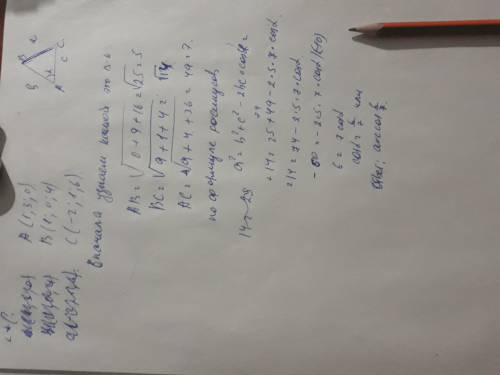 B
A
C
A (1; 3; 0)
B (1; 0; 4)
C (-2; 1; 6)
Вначале узнаем какой это
AB = √0+9+16 = √25 = 5
BC = √9+1+4 = √14
AC = √9+4+36 = 49 = 7
по формуле косинусов
a² = b² + c² - 2bc · cosα =
14 = 25 + 49 - 2·5·7·cosα
14 = 74 - 2·5·7·cosα
-60 = -2·5·7·cosα |(-10)
6 = 7 cosα
cosα = 6/7
Ответ: arccos 6/7